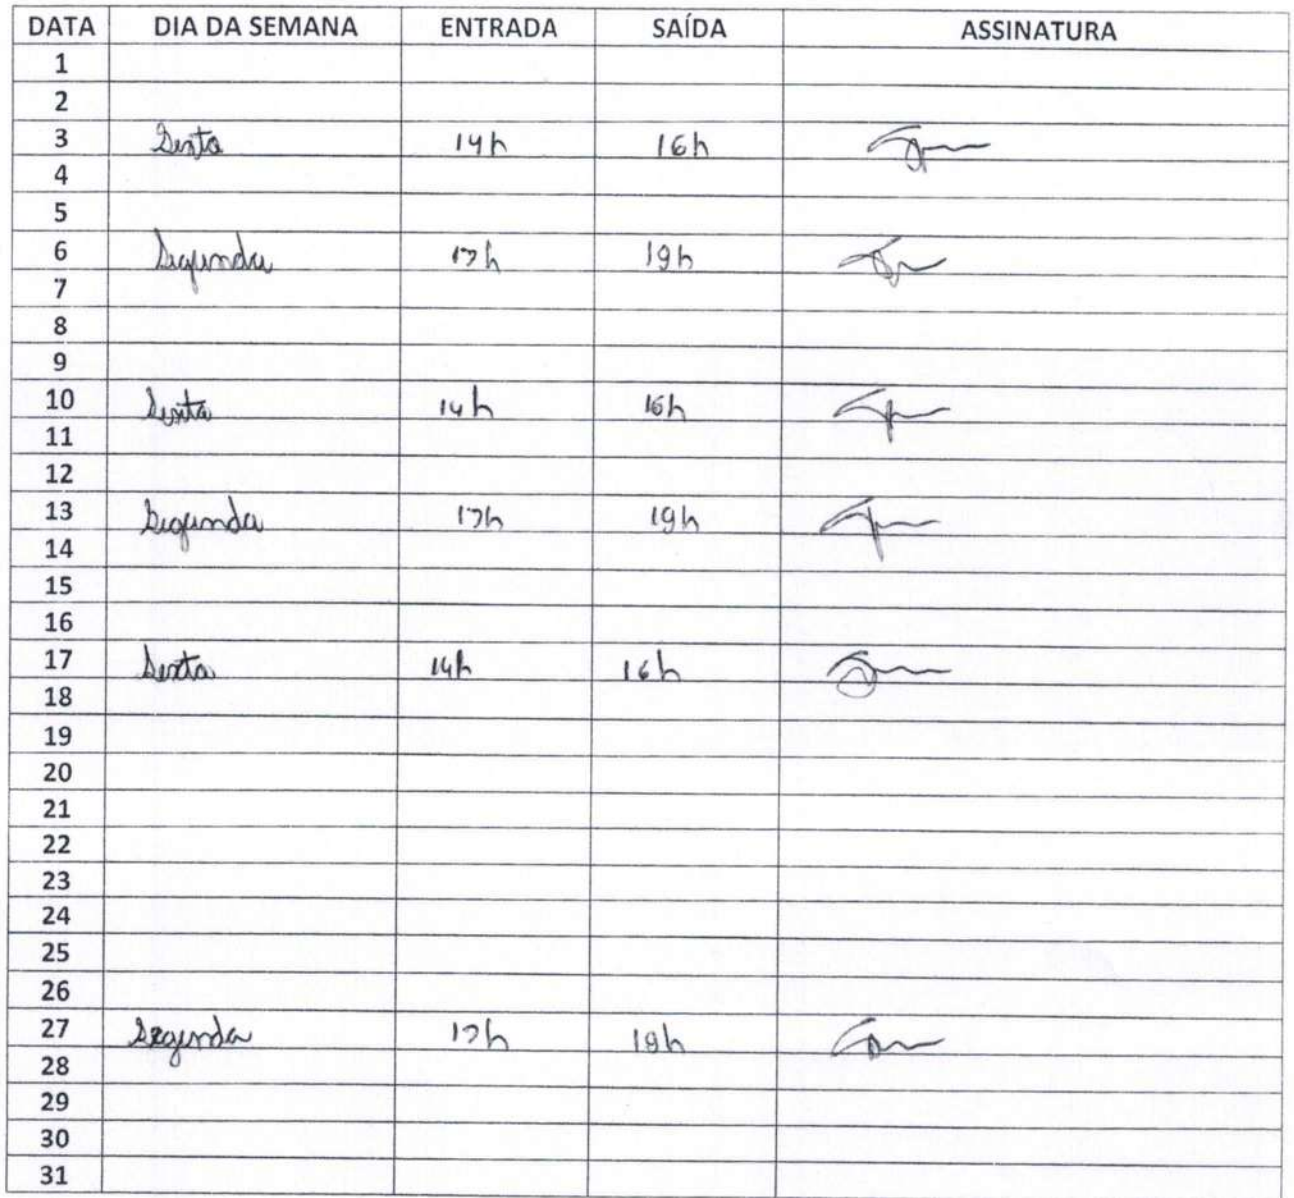 DATA DIA DA SEMANA ENTRADA SAÍDA ASSINATURA
1
2
3 Sexta 14h 16h
4
5
6 Segunda 17h 19h
7
8
9
10 Sexta 14h 16h
11
12
13 Segunda 17h 19h
14
15
16
17 Sexta 14h 16h
18
19
20
21
22
23
24
25
26
27 Segunda 17h 19h
28
29
30
31